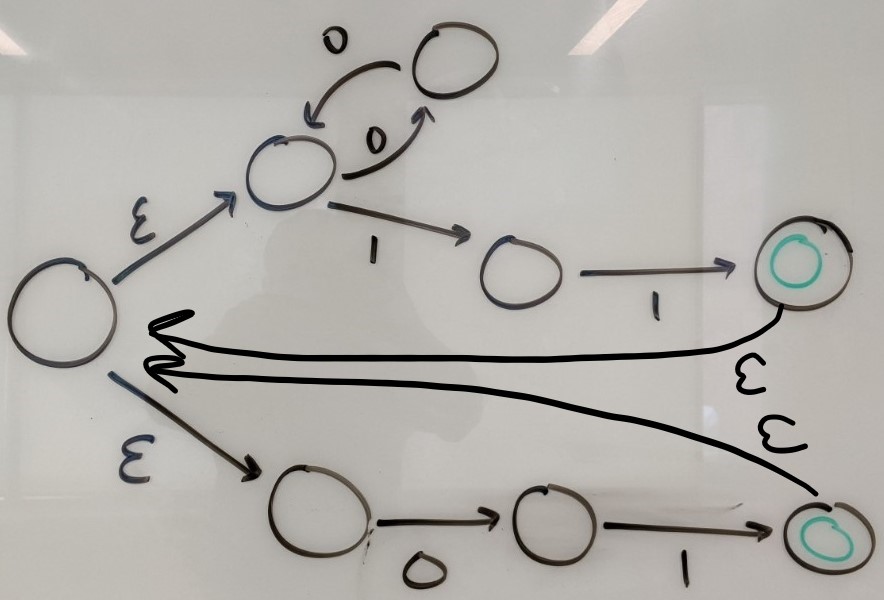 0
0
ε
1
1
ε
ε
ε
0
1